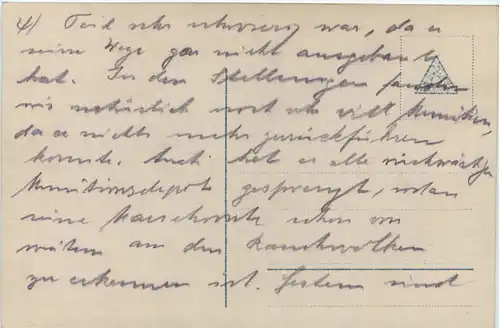 4) Teil sehr schwierig war, da er
seine Wege gar nicht ausgebaut
hat. In den Stellungen fanden
wir natürlich noch sehr viel Munition,
da er nichts mehr zurückführen
konnte. Auch hat er alle rückwärtigen
Munitionsdepots gesprengt, sodass
seine Marschroute schon von
weitem an den Rauchwolken
zu erkennen ist. Gestern sind